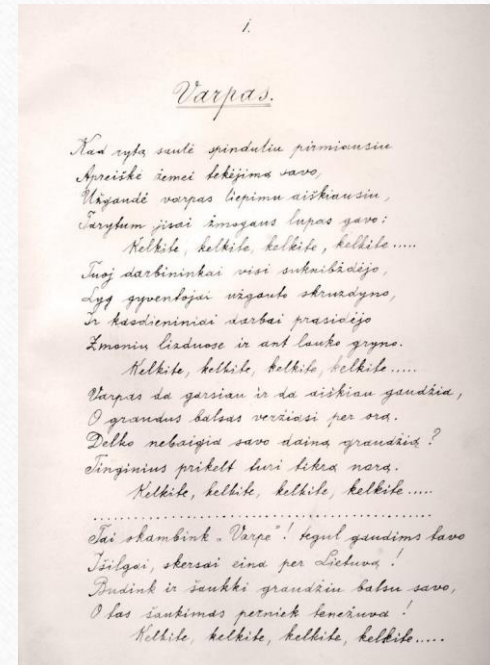 1.
Varpas.
Kad rytą saulė spinduliu pirmiausiu
Apreiškė žemei tekėjimą savo,
Užgaudė varpas liepimu aiškiausiu,
Tarytum jisai žmogaus lupas gavo:
Kelkite, kelkite, kelkite, kelkite.....
Tuoj darbininkai visi suknibždėjo,
Lyg gyventojai užgauto skruzdyno,
Ir kasdieniniai darbai prasidėjo
Žmonių lizduose ir ant lauko gryno.
Kelkite, kelkite, kelkite, kelkite.....
Varpas da garsiau ir da aiškiau gaudžia,
O grandus balsas veržiasi per orą.
Delko nebaigia savo dainą graudžią?
Tinginius prikelt turi tikrą norą.
Kelkite, kelkite, kelkite, kelkite.....
................................................
Tai skambink „Varpe"! tegul gaudims tavo
Išilgai, skersai eina per Lietuvą!
Budink ir šaukki graudžiu balsu savo,
O tas šaukimas perniek tenežuva!
Kelkite, kelkite, kelkite, kelkite.....